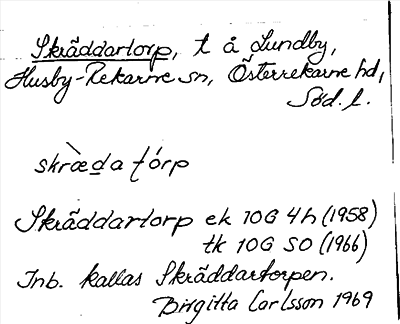 Skräddartorp, t å Lundby,
Husby-Rekarne sn, Österrekarne hd,
Söd. l.
skræ̀da tórp
Skräddartorp ek 10G 4h (1958)
tk 10G SO (1966)
Inb. kallas Skräddartorpen.
Birgitta Carlsson 1969